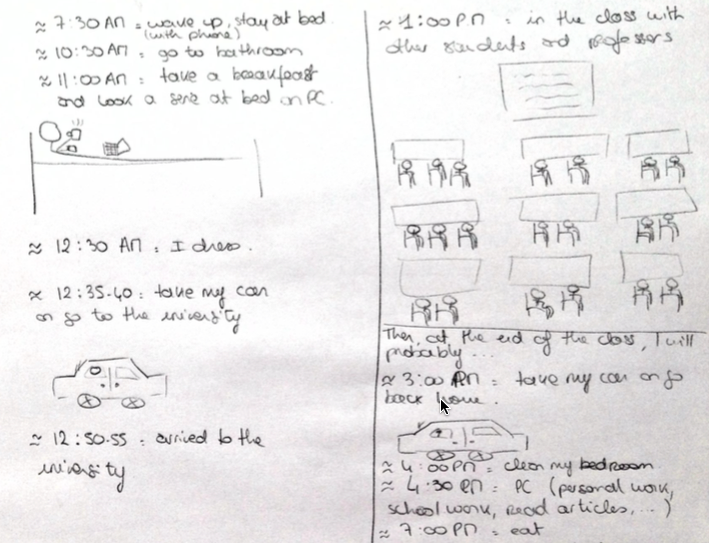 ≈ 7:30 AM = wake up, stay at bed
(with phone)
≈ 10:30 AM : go to bathroom
≈ 11:00 AM : take a breakfeast
and look a serie at bed on PC.
≈ 12:30 AM : I dress.
≈ 12:35-40 : take my car
on go to the university
≈ 12:50-55 : arrived to the
university
≈ 1:00 PM : in the class with
other students and professors
Then, at the end of the class, I will
probably ...
≈ 3:00 PM = take my car on go
back home.
≈ 4:00 PM = clean my bedroom
≈ 4:30 PM = PC (personal work,
school work, read articles, ...)
≈ 7:00 PM = eat